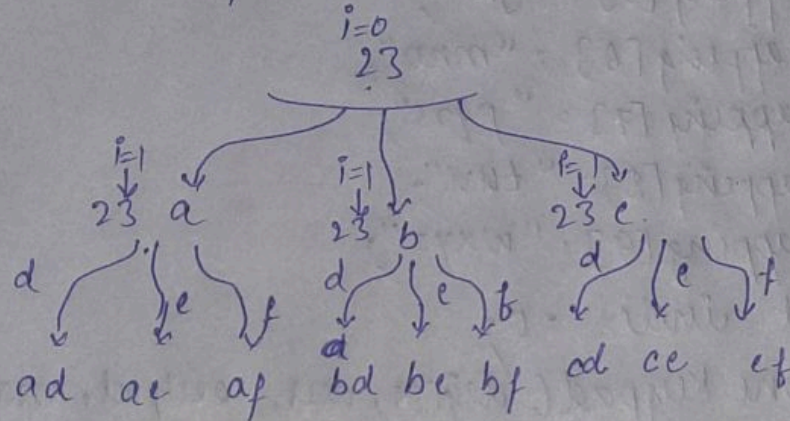 i=0
23
i=1 i=1 i=1
23 a 23 b 23 c
d e f d e f d e f
d
ad ae af bd be bf cd ce cf